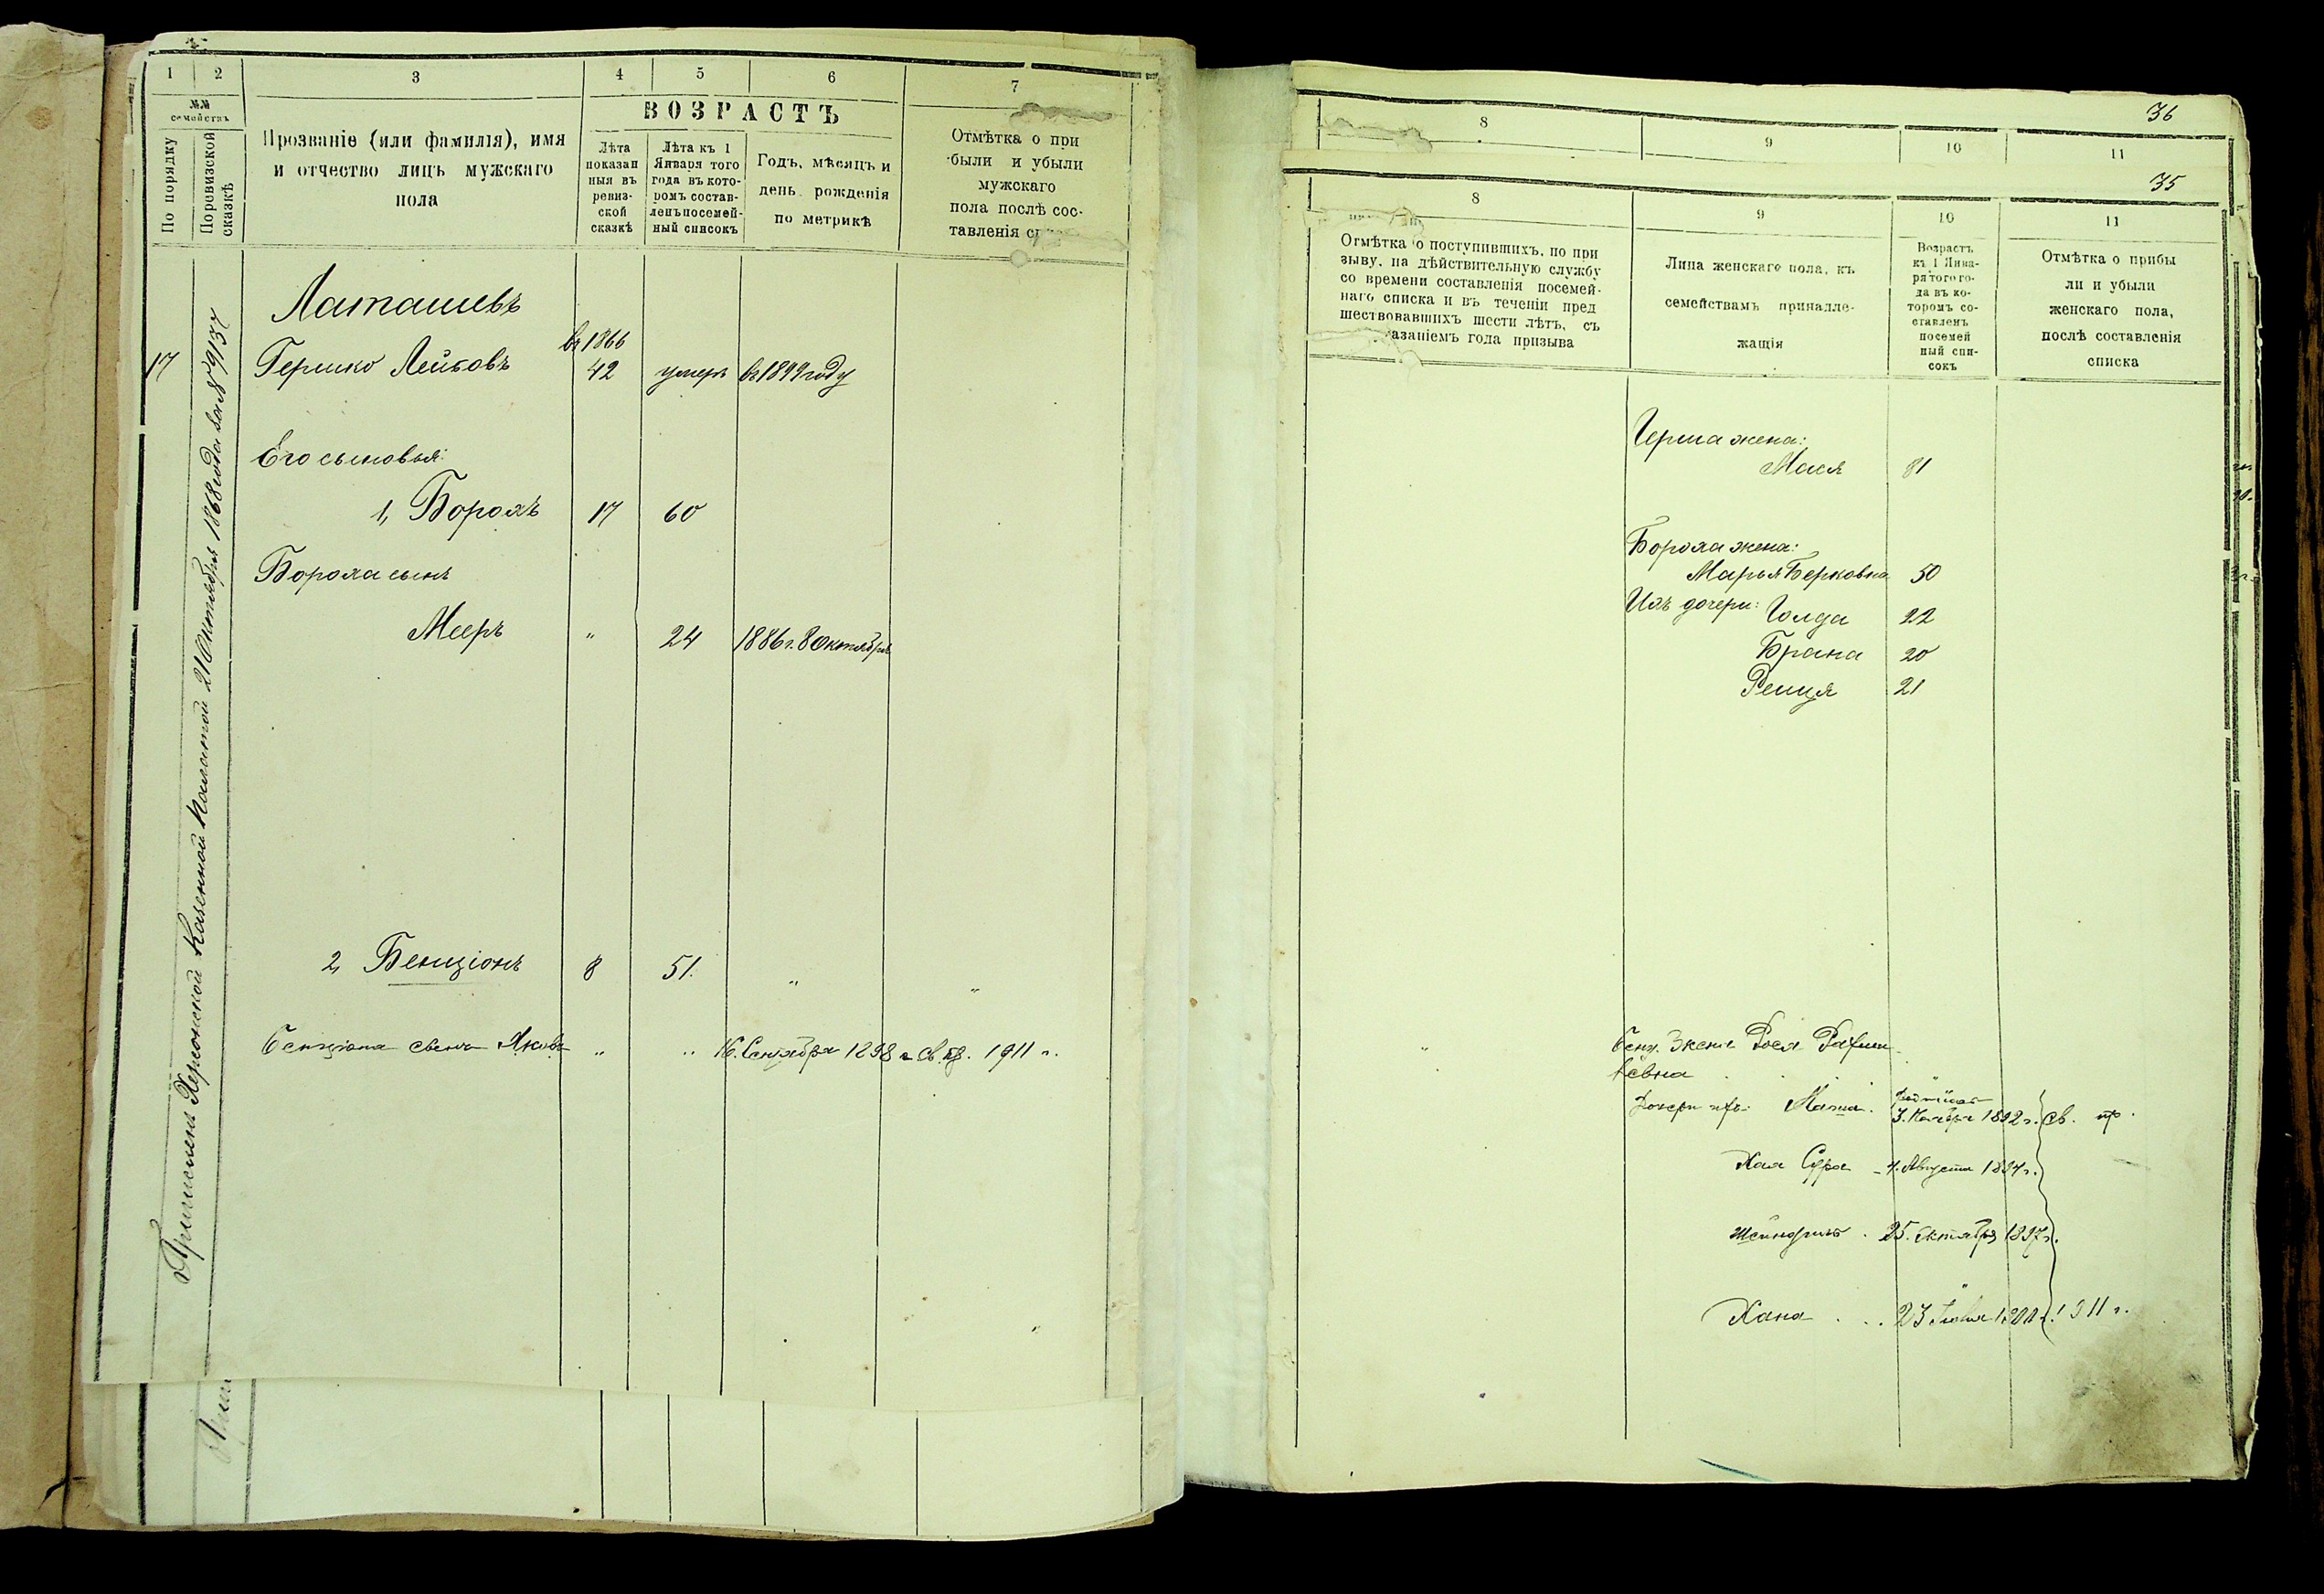 1 2 3 4 5 6 7
№№ семействъ
По порядку
По ревизской сказкѣ
Прозваніе (или фамилія), имя
и отчество лицъ мужскаго
пола
ВОЗРАСТЪ
Лѣта
показан
ныя въ
ревиз-
ской
сказкѣ
Лѣта къ 1
Января того
года въ кото-
ромъ состав-
ленъ посемей-
ный списокъ
Годъ, мѣсяцъ и
день рожденія
по метрикѣ
Отмѣтка о при
были и убыли
мужскаго
пола послѣ сос-
тавленія
Приписанъ Херсонской Казенной Палатой 21 Октября 1868 года за № 9137
Латашевъ
въ 1866
17 Гершко Лейбовъ 42 умеръ въ 1899 году
Его сыновья:
1, Борохъ 17 60
Бороха сынъ
Мееръ " 24 1886 г. 8 Октября
2, Бенціонъ 8 51. " "
Бенціона сынъ Яковъ " " 16. Сентября 1898 г. св. пр. 1911 г.
36
8 9 10 11
35
8 9 10 11
Отмѣтка о поступившихъ, по при
зыву, на дѣйствительную службу
со времени составленія посемей-
наго списка и въ теченіи пред
шествовавшихъ шести лѣтъ, съ
азаніемъ года призыва
Лица женскаго пола, къ
семействамъ принадле-
жащія
Возрастъ
къ 1 Янва-
ря того го-
да въ ко-
торомъ со-
ставленъ
посемей
ный спи-
сокъ
Отмѣтка о прибы
ли и убыли
женскаго пола,
послѣ составленія
списка
Герша жена:
Мася 81
Бороха жена:
Марья Берковна 50
Ихъ дочери: Голда 22
Брана 20
Рейзя 21
" Бенц. жена Рося
Дочери ихъ: 3. Ноября 1892 г. св. пр.
Хая Сура - 4. Августа 1894 г.
Шейндель . 25. Октября 1897 г.
Хана . . . 23 1900 г. 1911 г.